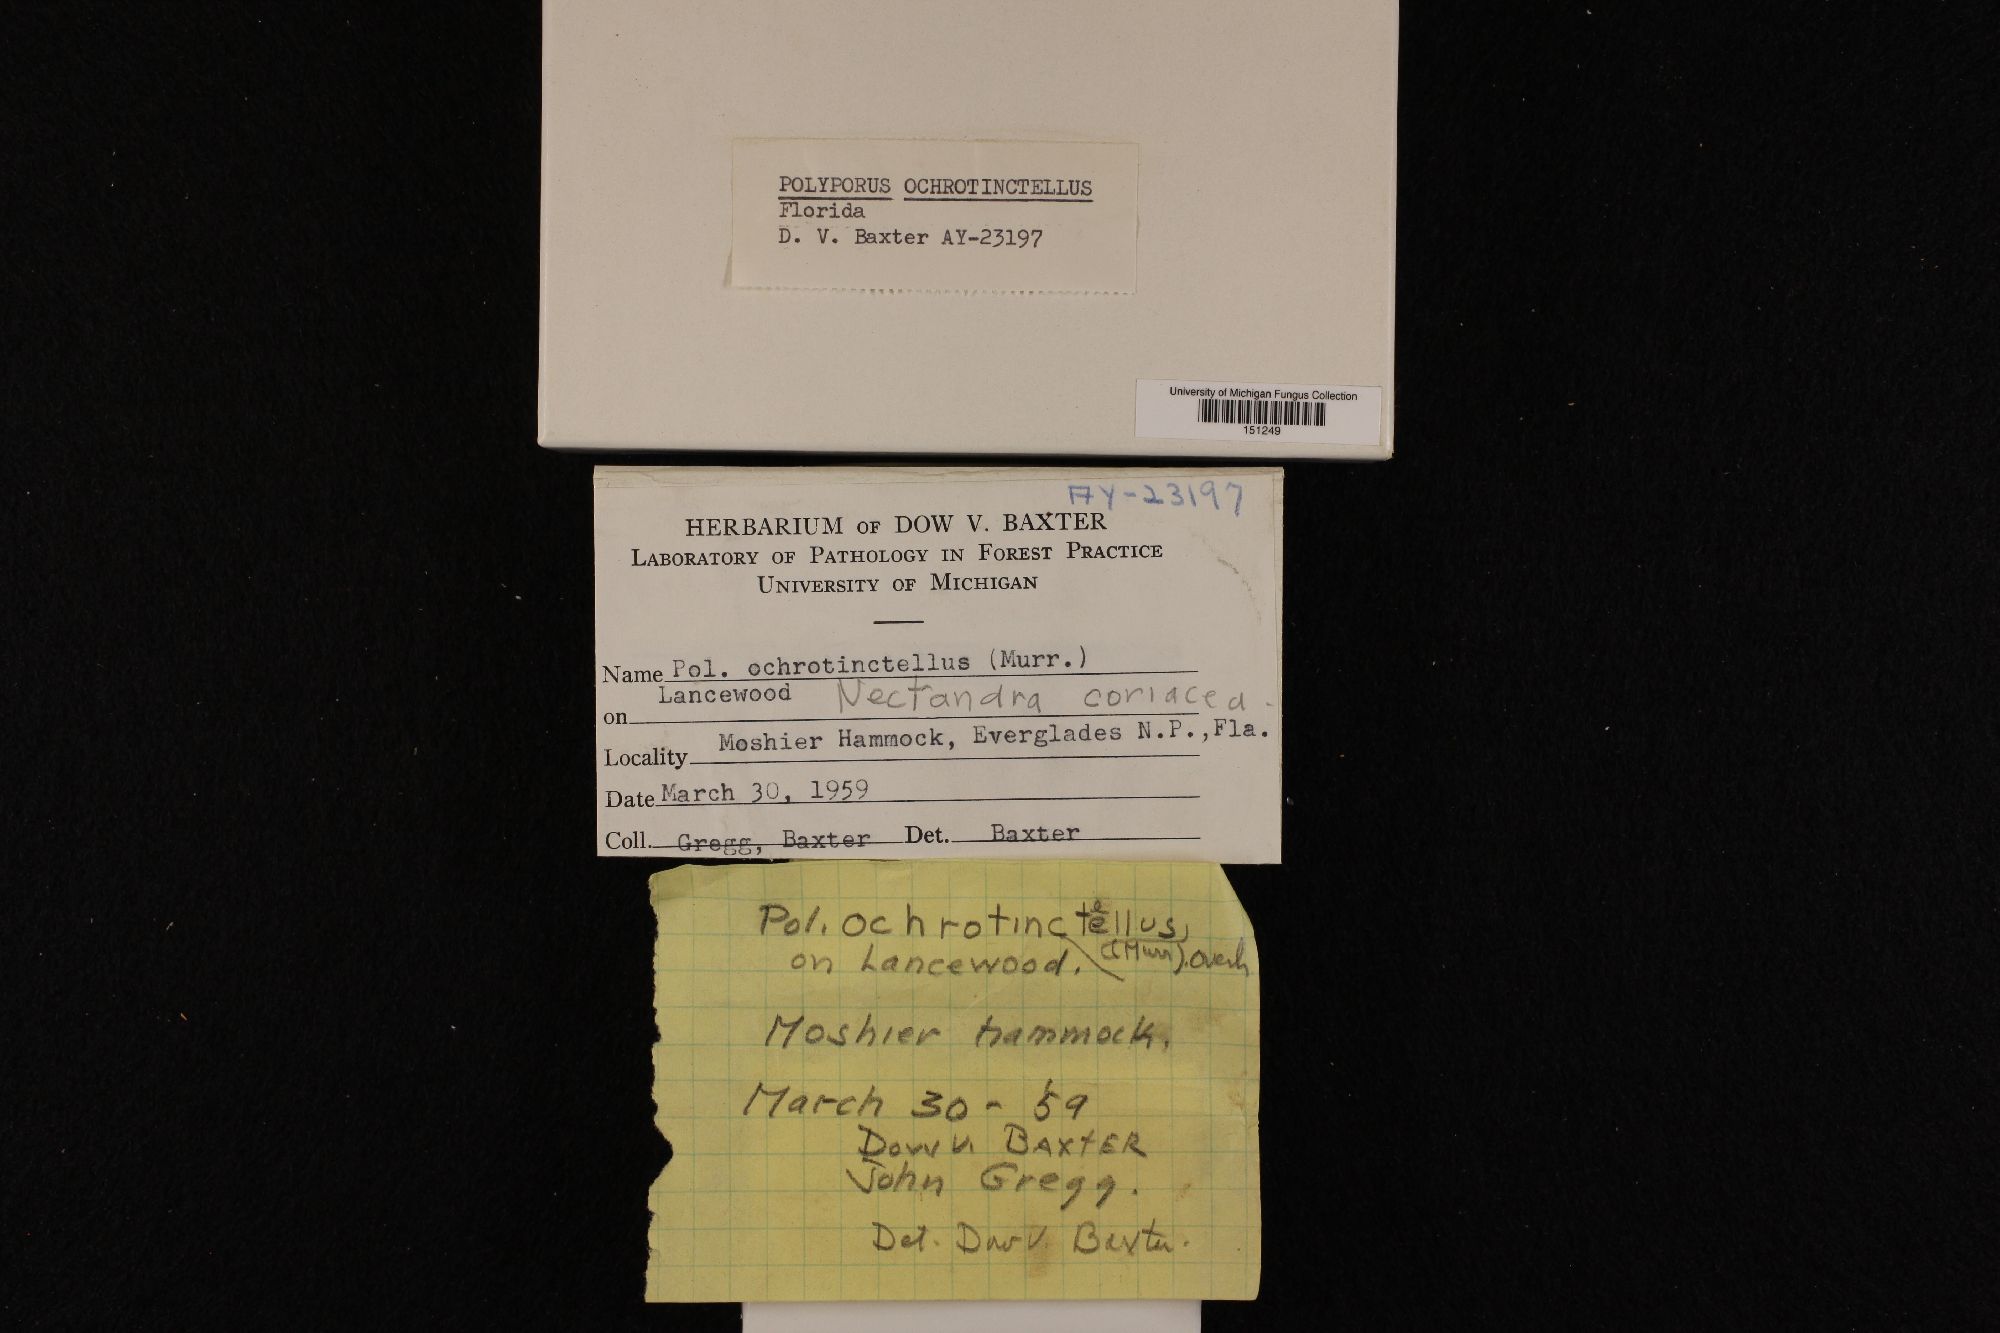 POLYPORUS OCHROTINCTELLUS
Florida
D. V. Baxter AY-23197
University of Michigan Fungus Collection
151249
AY-23197
HERBARIUM OF DOW V. BAXTER
LABORATORY OF PATHOLOGY IN FOREST PRACTICE
UNIVERSITY OF MICHIGAN
Name Pol. ochrotinctellus (Murr.)
on Lancewood Nectandra coriacea.
Locality Moshier Hammock, Everglades N.P.,Fla.
Date March 30, 1959
Coll. Gregg, Baxter Det. Baxter
Pol. ochrotinctellus,
on Lancewood. (Murr). Overh
Moshier hammock.
March 30 - 59
Dow V. BAXTER
John Gregg.
Det. Dow V. Baxter.